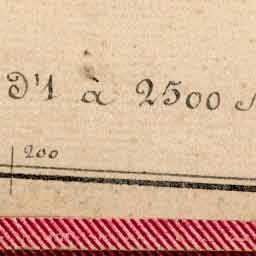 D'1 à 2500
200